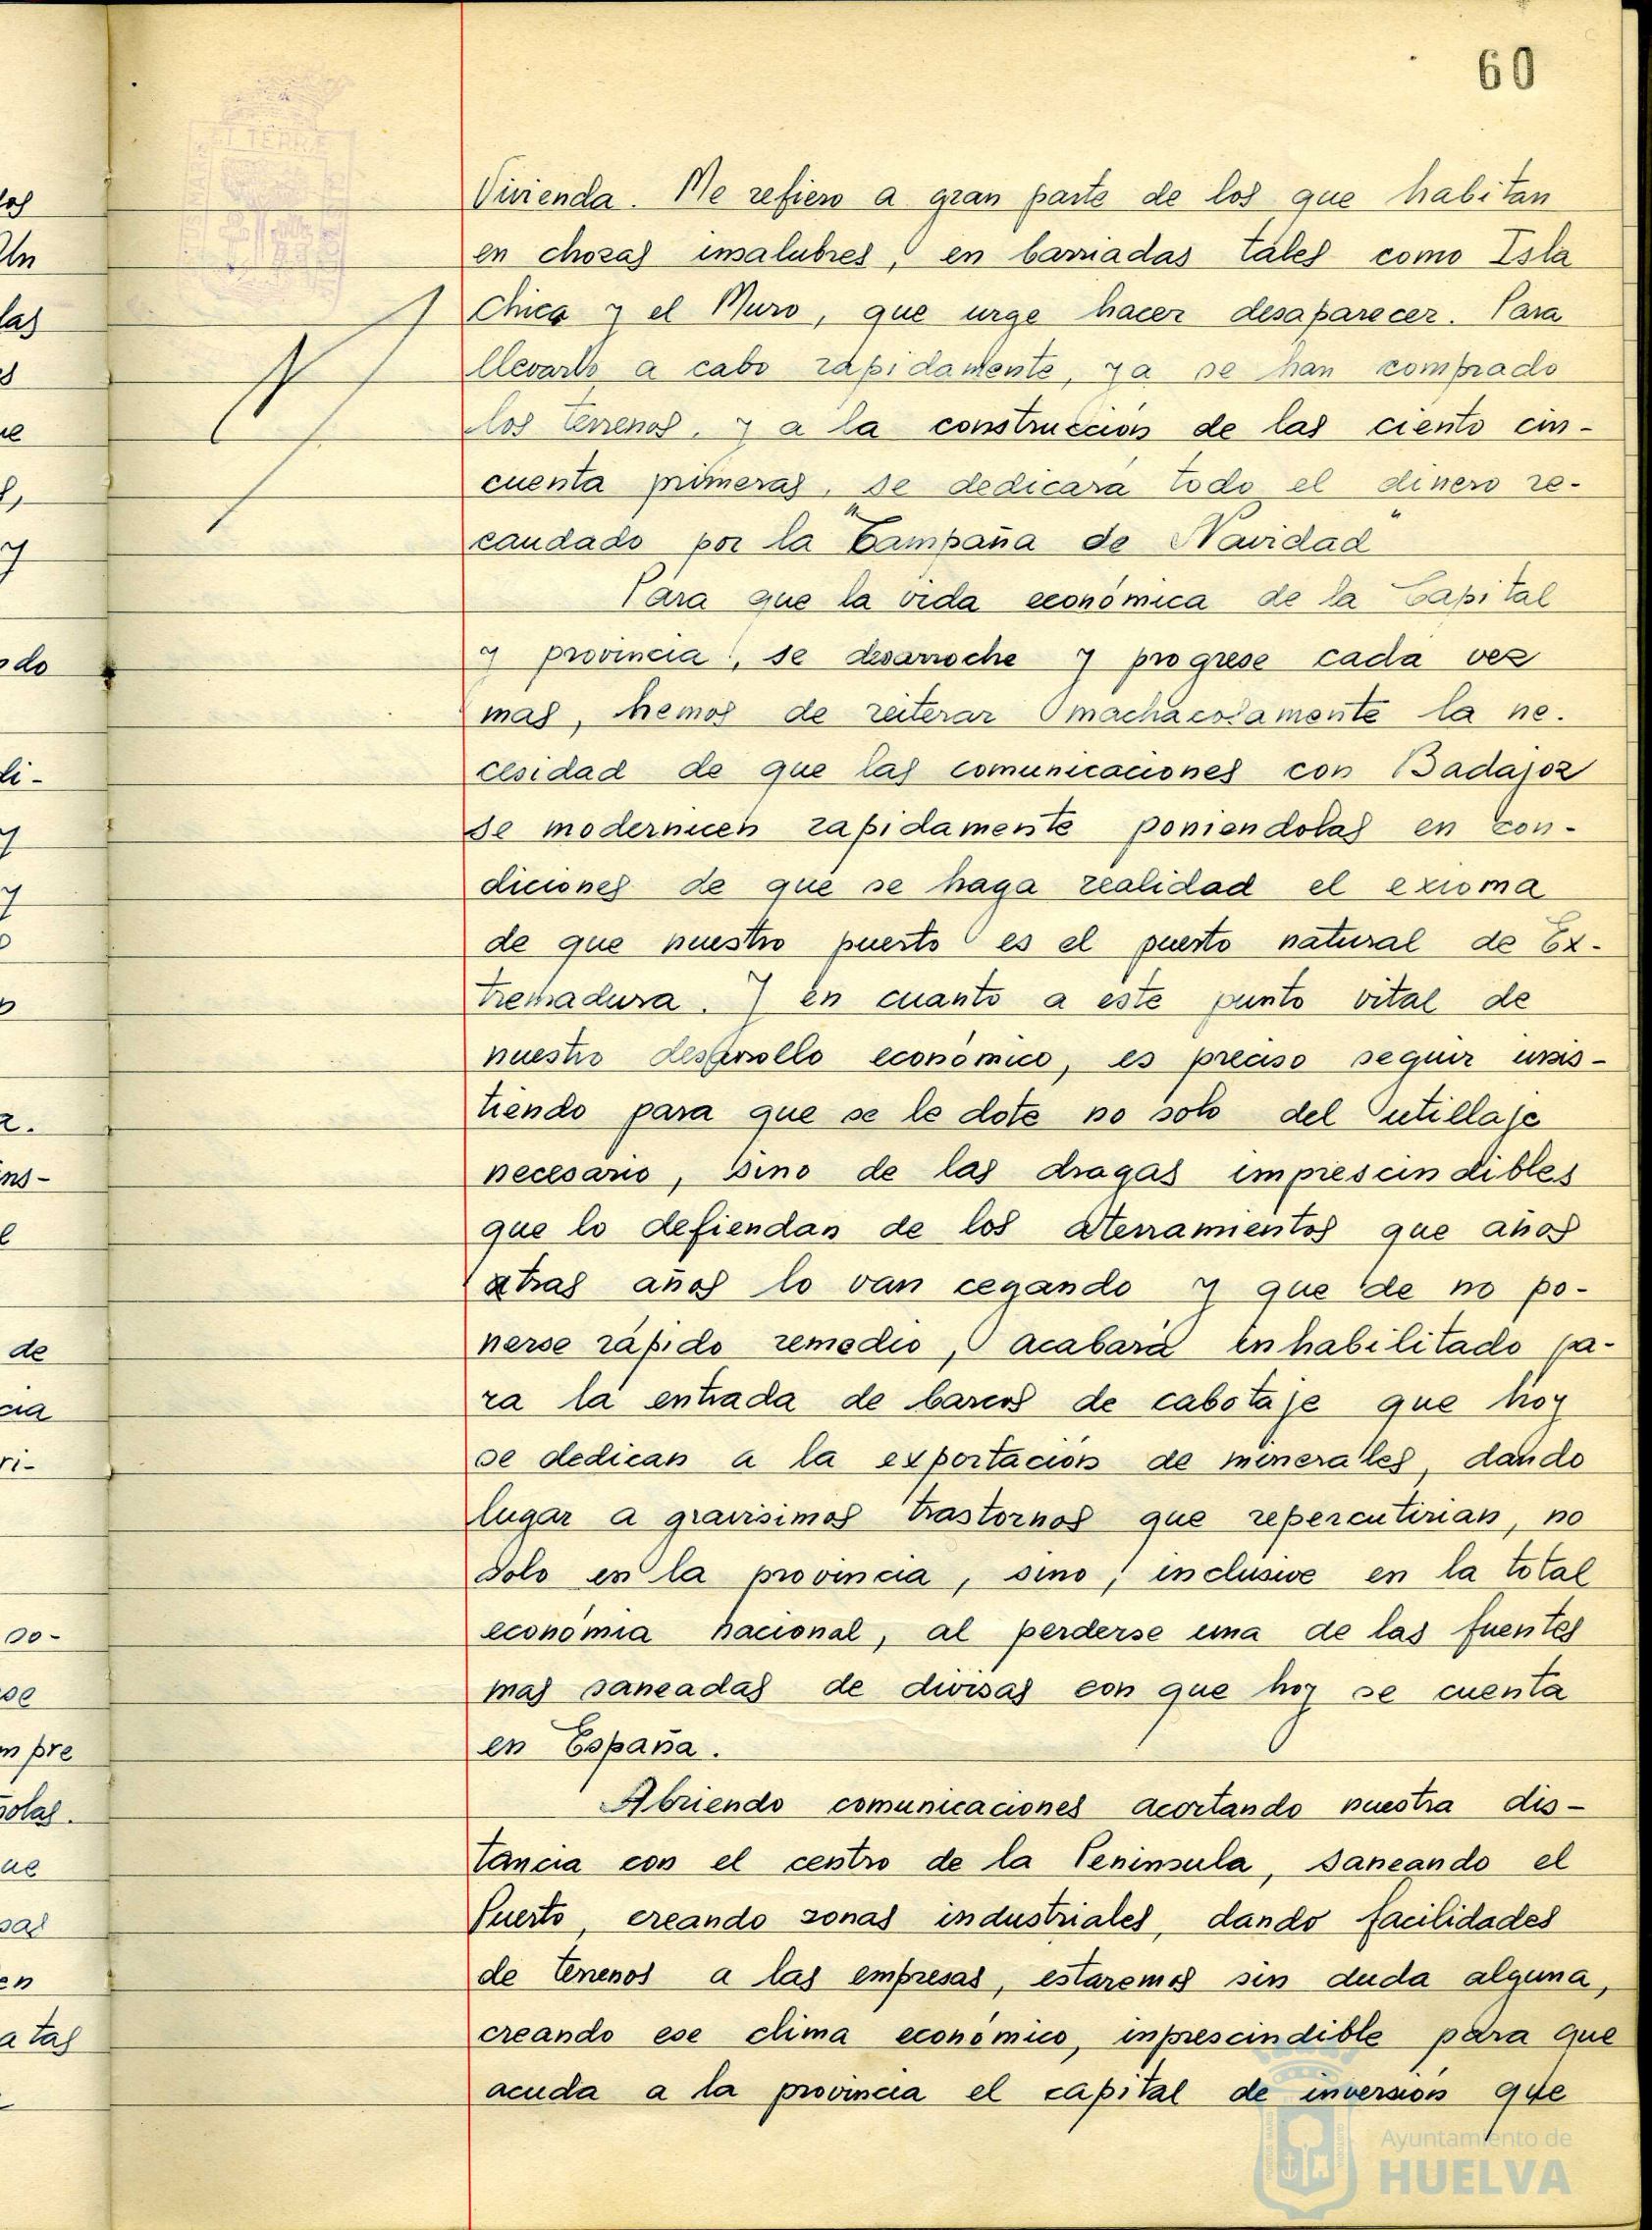 60
Vivienda. Me refiero a gran parte de los que habitan
en chozas insalubres, en barriadas tales como Isla
Chica y el Muro, que urge hacer desaparecer. Para
llevarlo a cabo rapidamente, ya se han comprado
los terrenos, y a la construcción de las ciento cin-
cuenta primeras, se dedicará todo el dinero re-
caudado por la "Campaña de Navidad"
Para que la vida económica de la Capital
y provincia, se desarroche y progrese cada vez
mas, hemos de reiterar machaconamente la ne-
cesidad de que las comunicaciones con Badajoz
se modernicen rapidamente poniendolas en con-
diciones de que se haga realidad el exioma
de que nuestro puerto es el puerto natural de Ex-
tremadura. Y en cuanto a este punto vital de
nuestro desarrollo económico, es preciso seguir insis-
tiendo para que se le dote no solo del utillaje
necesario, sino de las dragas imprescindibles
que lo defiendan de los aterramientos que años
atras años lo van cegando y que de no po-
nerse rápido remedio, acabará inhabilitado pa-
ra la entrada de barcos de cabotaje que hoy
se dedican a la exportación de minerales, dando
lugar a gravisimos trastornos que repercutirian, no
solo en la provincia, sino, inclusive en la total
económia nacional, al perderse una de las fuentes
mas saneadas de divisas con que hoy se cuenta
en España.
Abriendo comunicaciones acortando nuestra dis-
tancia con el centro de la Peninsula, saneando el
Puerto, creando zonas industriales, dando facilidades
de terrenos a las empresas, estaremos sin duda alguna,
creando ese clima económico, inprescindible para que
acuda a la provincia el capital de inversión que
Ayuntamiento de
HUELVA